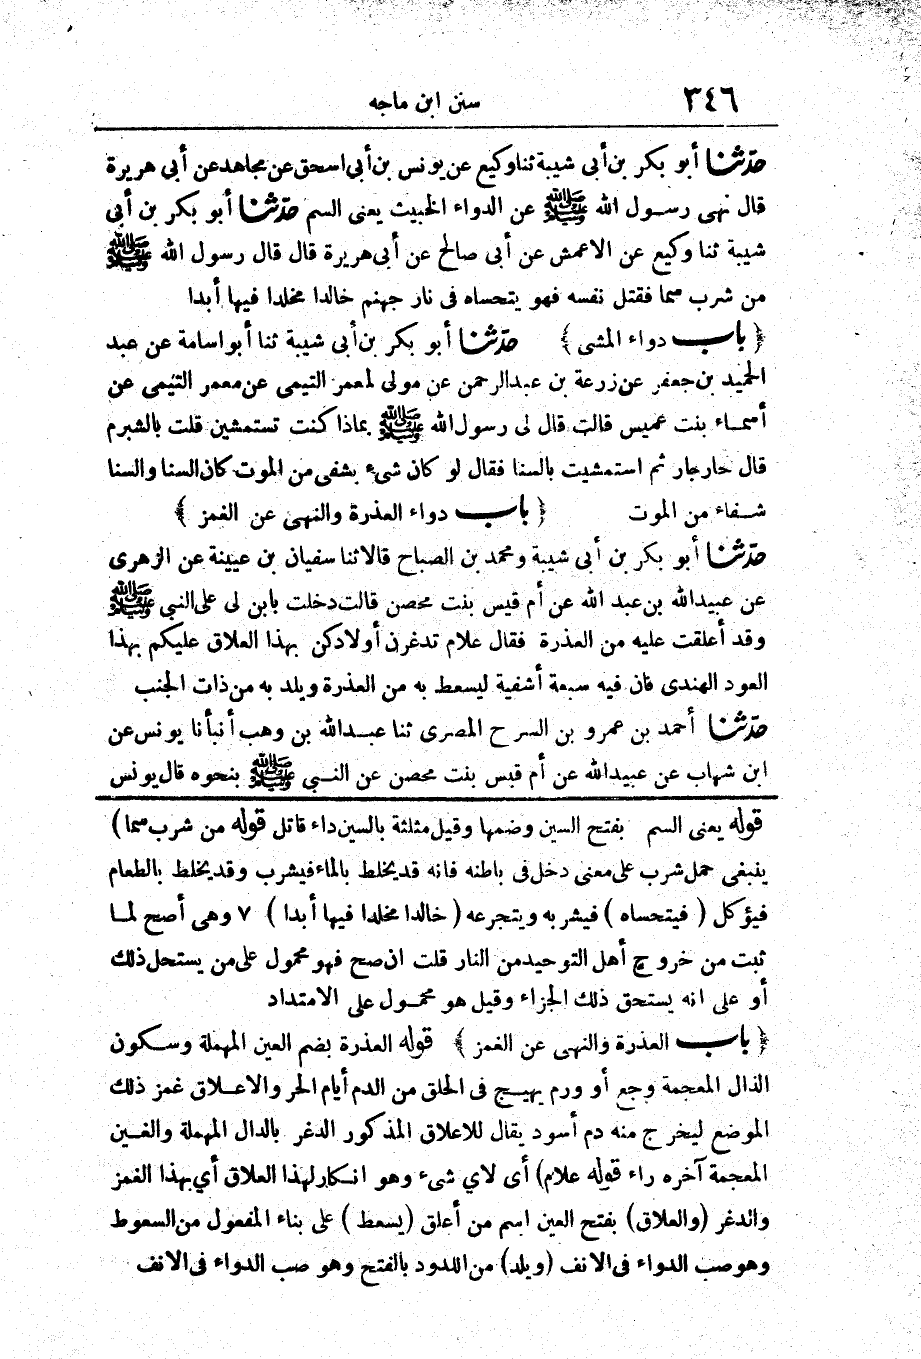 ٣٤٦ سنن ابن ماجه
حدثنا أبو بكر بن أبى شيبة ثنا وكيع عن يونس بن أبى اسحق عن مجاهد عن أبى هريرة
قال نهى رسول الله ﷺ عن الدواء الخبيث يعنى السم حدثنا أبو بكر بن أبى
شيبة ثنا وكيع عن الاعمش عن أبى صالح عن أبى هريرة قال قال رسول الله ﷺ
من شرب سما فقتل نفسه فهو يتحساه فى نار جهنم خالدا مخلدا فيها أبدا
﴿ باب دواء المشى ﴾ حدثنا أبو بكر بن أبى شيبة ثنا أبو اسامة عن عبد
الحميد بن جعفر عن زرعة بن عبدالرحمن عن مولى لمعمر التيمى عن معمر التيمى عن
أسماء بنت عميس قالت قال لى رسول الله ﷺ بماذا كنت تستمشين قلت بالشبرم
قال حار جار ثم استمشيت بالسنا فقال لو كان شىء يشفى من الموت كان السنا والسنا
شفاء من الموت ﴿ باب دواء العذرة والنهى عن الغمز ﴾
حدثنا أبو بكر بن أبى شيبة ومحمد بن الصباح قالا ثنا سفيان بن عيينة عن الزهرى
عن عبيدالله بن عبد الله عن أم قيس بنت محصن قالت دخلت بابن لى على النبى ﷺ
وقد أعلقت عليه من العذرة فقال علام تدغرن أولادكن بهذا العلاق عليكم بهذا
العود الهندى فان فيه سبعة أشفية ليسعط به من العذرة ويلد به من ذات الجنب
حدثنا أحمد بن عمرو بن السرح المصرى ثنا عبدالله بن وهب أنبأنا يونس عن
ابن شهاب عن عبيدالله عن أم قيس بنت محصن عن النبى ﷺ بنحوه قال يونس
قوله يعنى السم بفتح السين وضمها وقيل مثلثة بالسين داء قاتل قوله من شرب سما )
ينبغى حمل شرب على معنى دخل فى باطنه فانه قد يخلط بالماء فيشرب وقد يخلط بالطعام
فيؤكل ( فيتحساه ) فيشربه ويتجرعه ( خالدا مخلدا فيها أبدا ) ٧ وهى أصح لما
ثبت من خروج أهل التوحيد من النار قلت ان صح فهو محمول على من يستحل ذلك
أو على انه يستحق ذلك الجزاء وقيل هو محمول على الامتداد
﴿ باب العذرة والنهى عن الغمز ﴾ قوله العذرة بضم العين المهملة وسكون
الذال المعجمة وجع أو ورم يهيج فى الحلق من الدم أيام الحر والاعلاق غمز ذلك
الموضع ليخرج منه دم أسود يقال للاعلاق المذكور الدغر بالدال المهملة والغين
المعجمة آخره راء قوله علام) أى لاي شىء وهو انكار لهذا العلاق أي بهذا الغمز
والدغر (والعلاق) بفتح العين اسم من أعلق (يسعط) على بناء المفعول من السعوط
وهو صب الدواء فى الانف (ويلد) من اللدود بالفتح وهو صب الدواء فى الانف